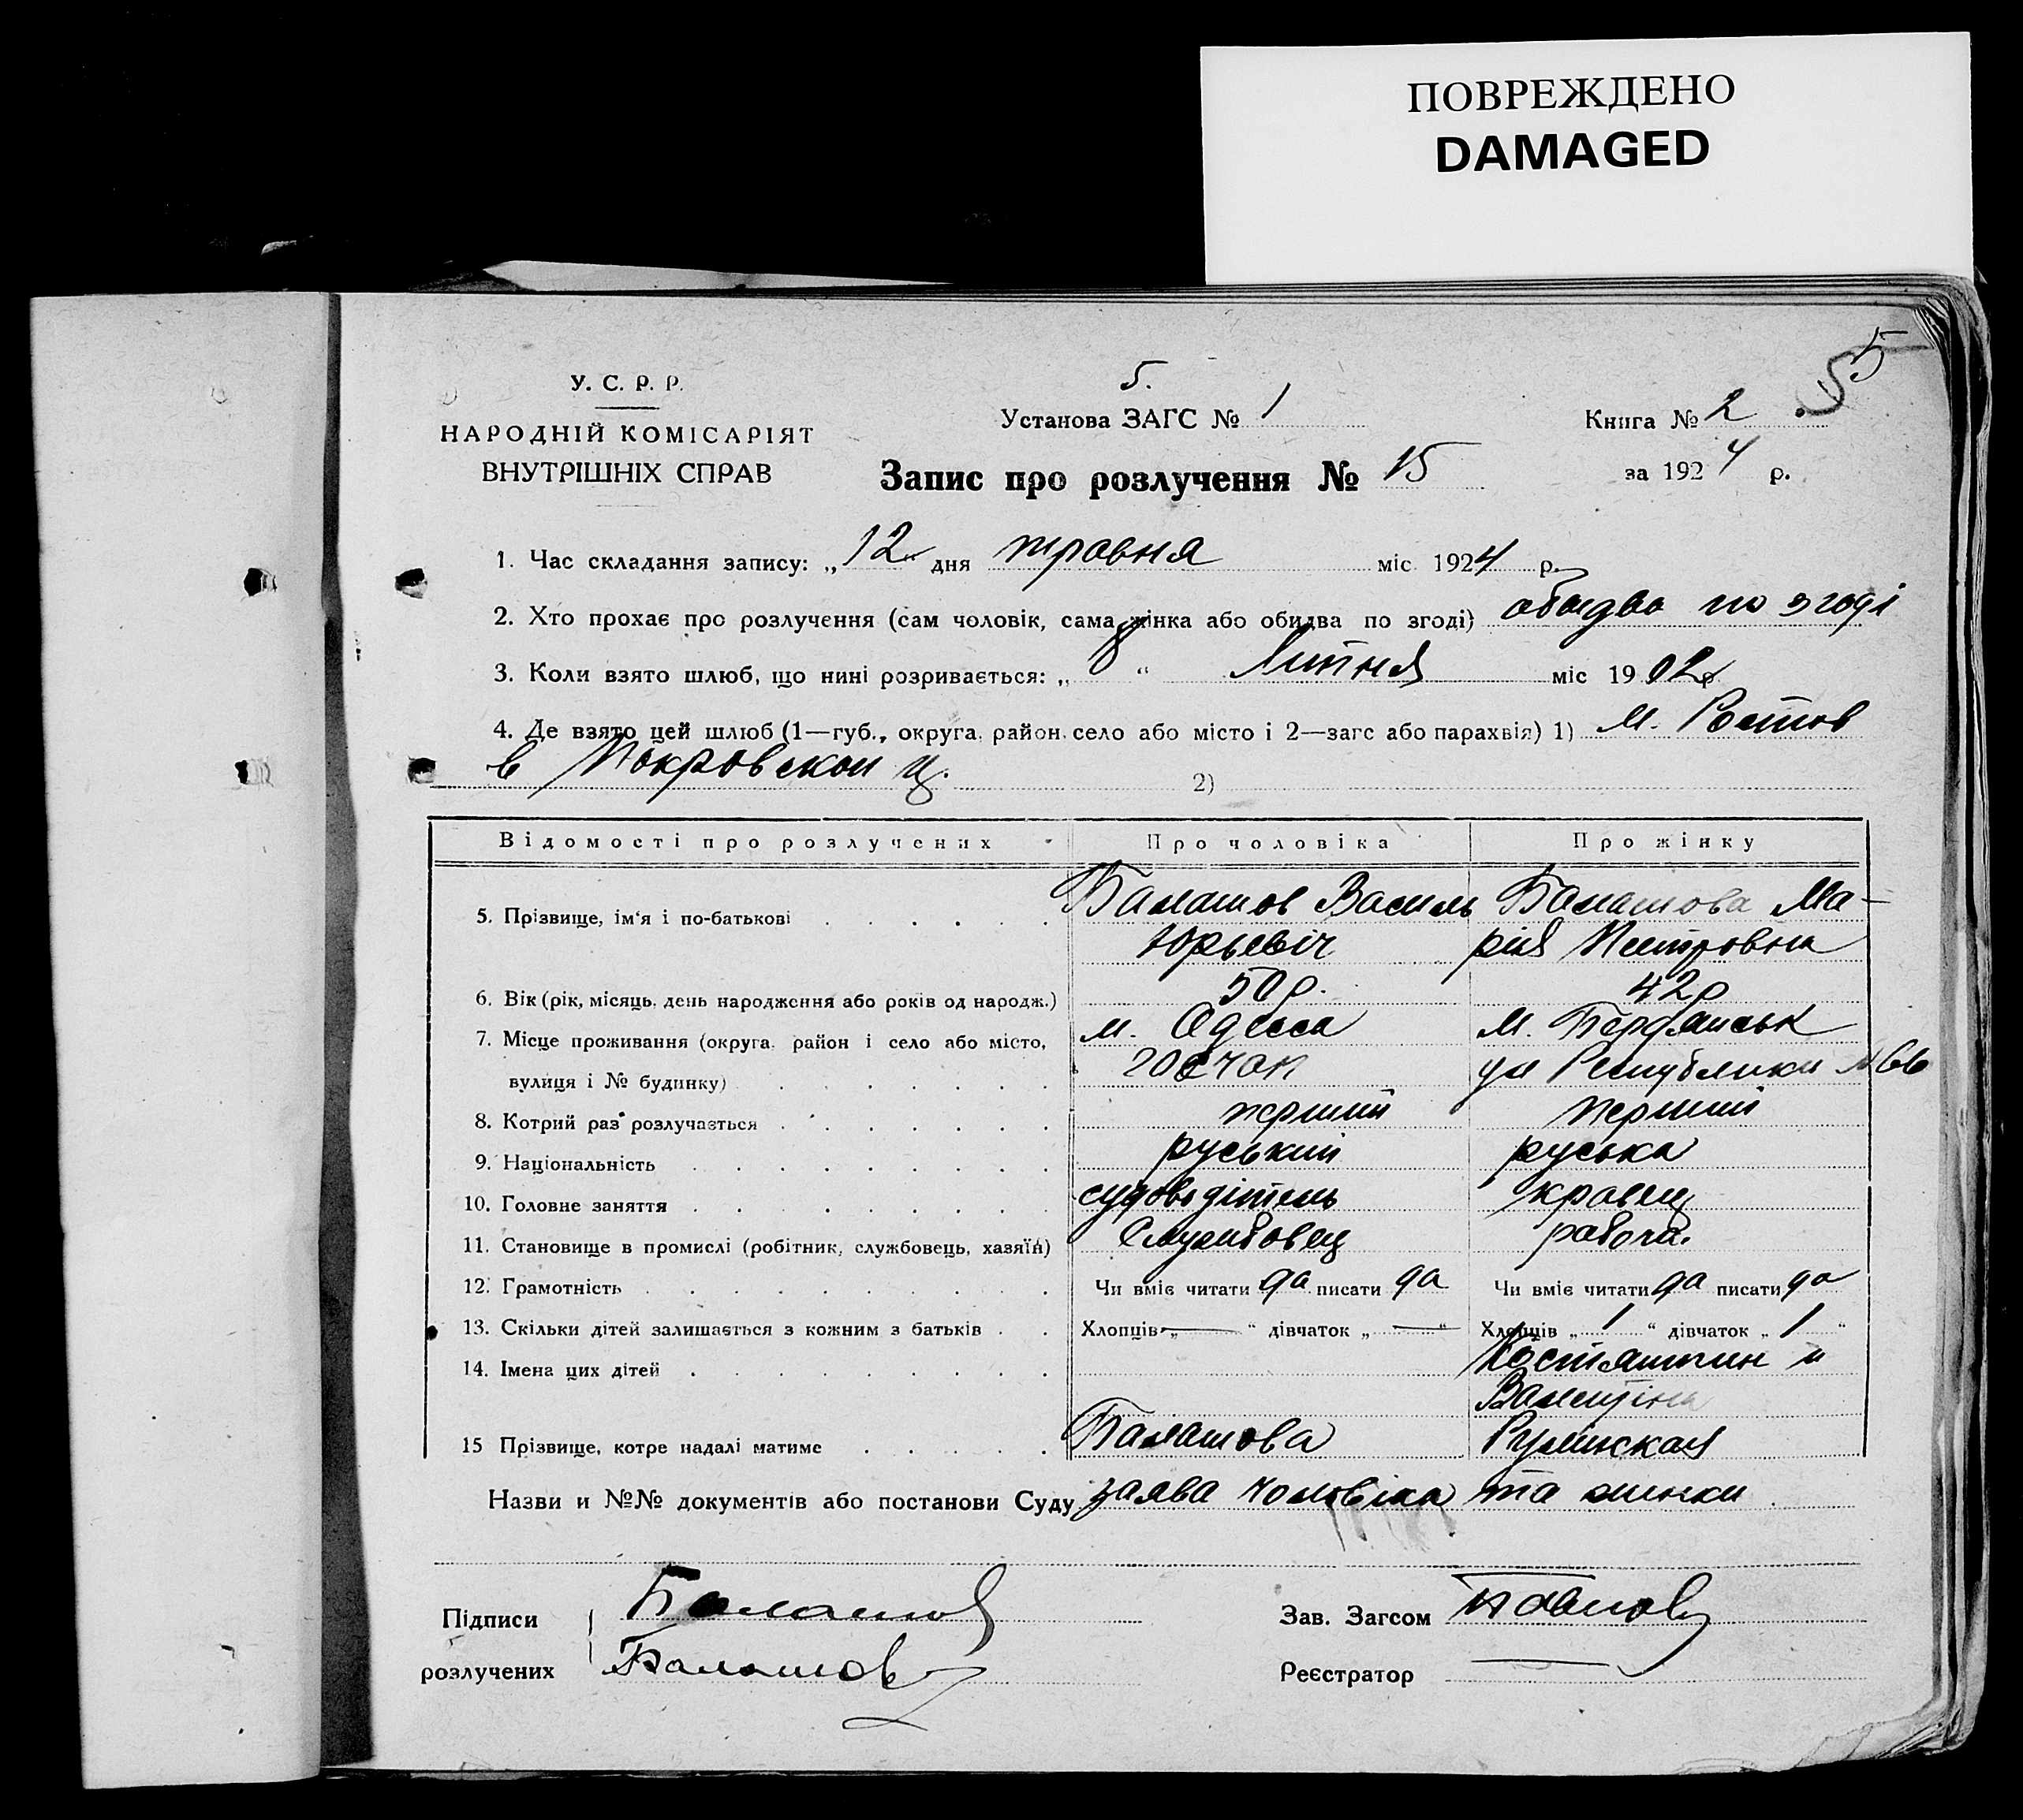 ПОВРЕЖДЕНО
DAMAGED
5
5
У. С. Р. Р.
НАРОДНІЙ КОМІСАРІЯТ
ВНУТРІШНІХ СПРАВ
5.
Установа ЗАГС № 1
Книга № 2
за 1924 р.
Запис про розлучення № 15
1. Час складання запису: „ 12 дня травня міс. 1924 р.
2. Хто прохає про розлучення (сам чоловік, сама жінка або обидва по згоді) обидва по згоді
3. Коли взято шлюб, що нині розривається: „ 8 “ Липня міс 1902 р
4. Де взято цей шлюб (1—губ., округа, район, село або місто і 2—загс або парахвія) 1) м. Ростов
в Покровской ц. 2)
Відомості про розлучених Про чоловіка Про жінку
5. Прізвище, ім'я і по-батькові Балашов Василь Балашова Ма-
Юрьевіч рія Петровна
6. Вік (рік, місяць, день народження або років од народж.) 50 р. 42 р
7. Місце проживання (округа, район і село або місто, м. Одесса м. Бердянськ
вулиця і № будинку) ул Республики № 66
8. Котрий раз розлучається перший перший
9. Національність руський руська
10. Головне заняття судоводітель кравец
11. Становище в промислі (робітник, службовець, хазяїн) Службовец робоча.
12. Грамотність Чи вміє читати да писати да Чи вміє читати да писати да
13. Скільки дітей залишається з кожним з батьків Хлопців „ — “ дівчаток „ — “ Хлопців „ 1 “ дівчаток „ 1 “
14. Імена цих дітей Костянтин и
Валентіна
15 Прізвище, котре надалі матиме Балашова
Назви и №№ документів або постанови Суду заява чоловіка та жинки
Підписи Балашов Зав. Загсом
розлучених Балашов Реєстратор —